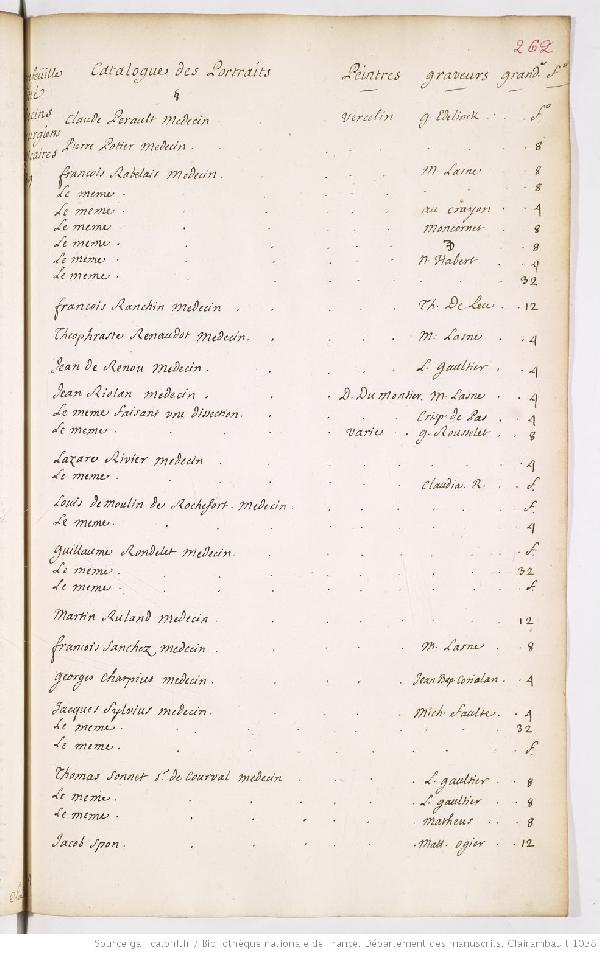 262
Catalogue des Portraits Peintres graveurs grand.r f.o
Claude Perault Medecin vercelin g. Edelinck f.o
Pierre Potier Medecin 8
françois Rabelais Medecin M. Lasne 8
Le meme 8
Le meme au crayon 4
Le meme Moncornet 8
Le meme 8
Le meme N. Habert 4
Le meme 32
françois Ranchin Medecin Th. De Leu 12
Theophraste Renaudot Medecin M. Lasne 4
Jean de Renou Medecin L. Gaultier 4
Jean Riolan medecin D. Du Montier M. Lasne 4
Le meme faisant vne dissection Crisp. de Pas 4
Le meme varie g. Rousselet 8
Lazare Rivier medecin 4
Le meme Claudia R. f.
Louis demoulin de Rochefort Medecin f.
Le meme 4
Guillaume Rondelet Medecin f.
Le meme 32
Le meme f.
Martin Ruland Medecin 12
françois Sanchez Medecin M. Lasne 8
Georges Charpius Medecin Jean Bap. Coriolan 4
Jacques Sylvius Medecin Mich. Faulte 4
Le meme 32
Le meme f.
Thomas Sonnet s.r de Courval medecin L. gaultier 8
Le meme L. gaultier 8
Le meme Matheus 8
Jacob Spon Matt. Ogier 12
Source gallica.bnf.fr / Bibliothèque nationale de France. Département des manuscrits. Clairambault 1038